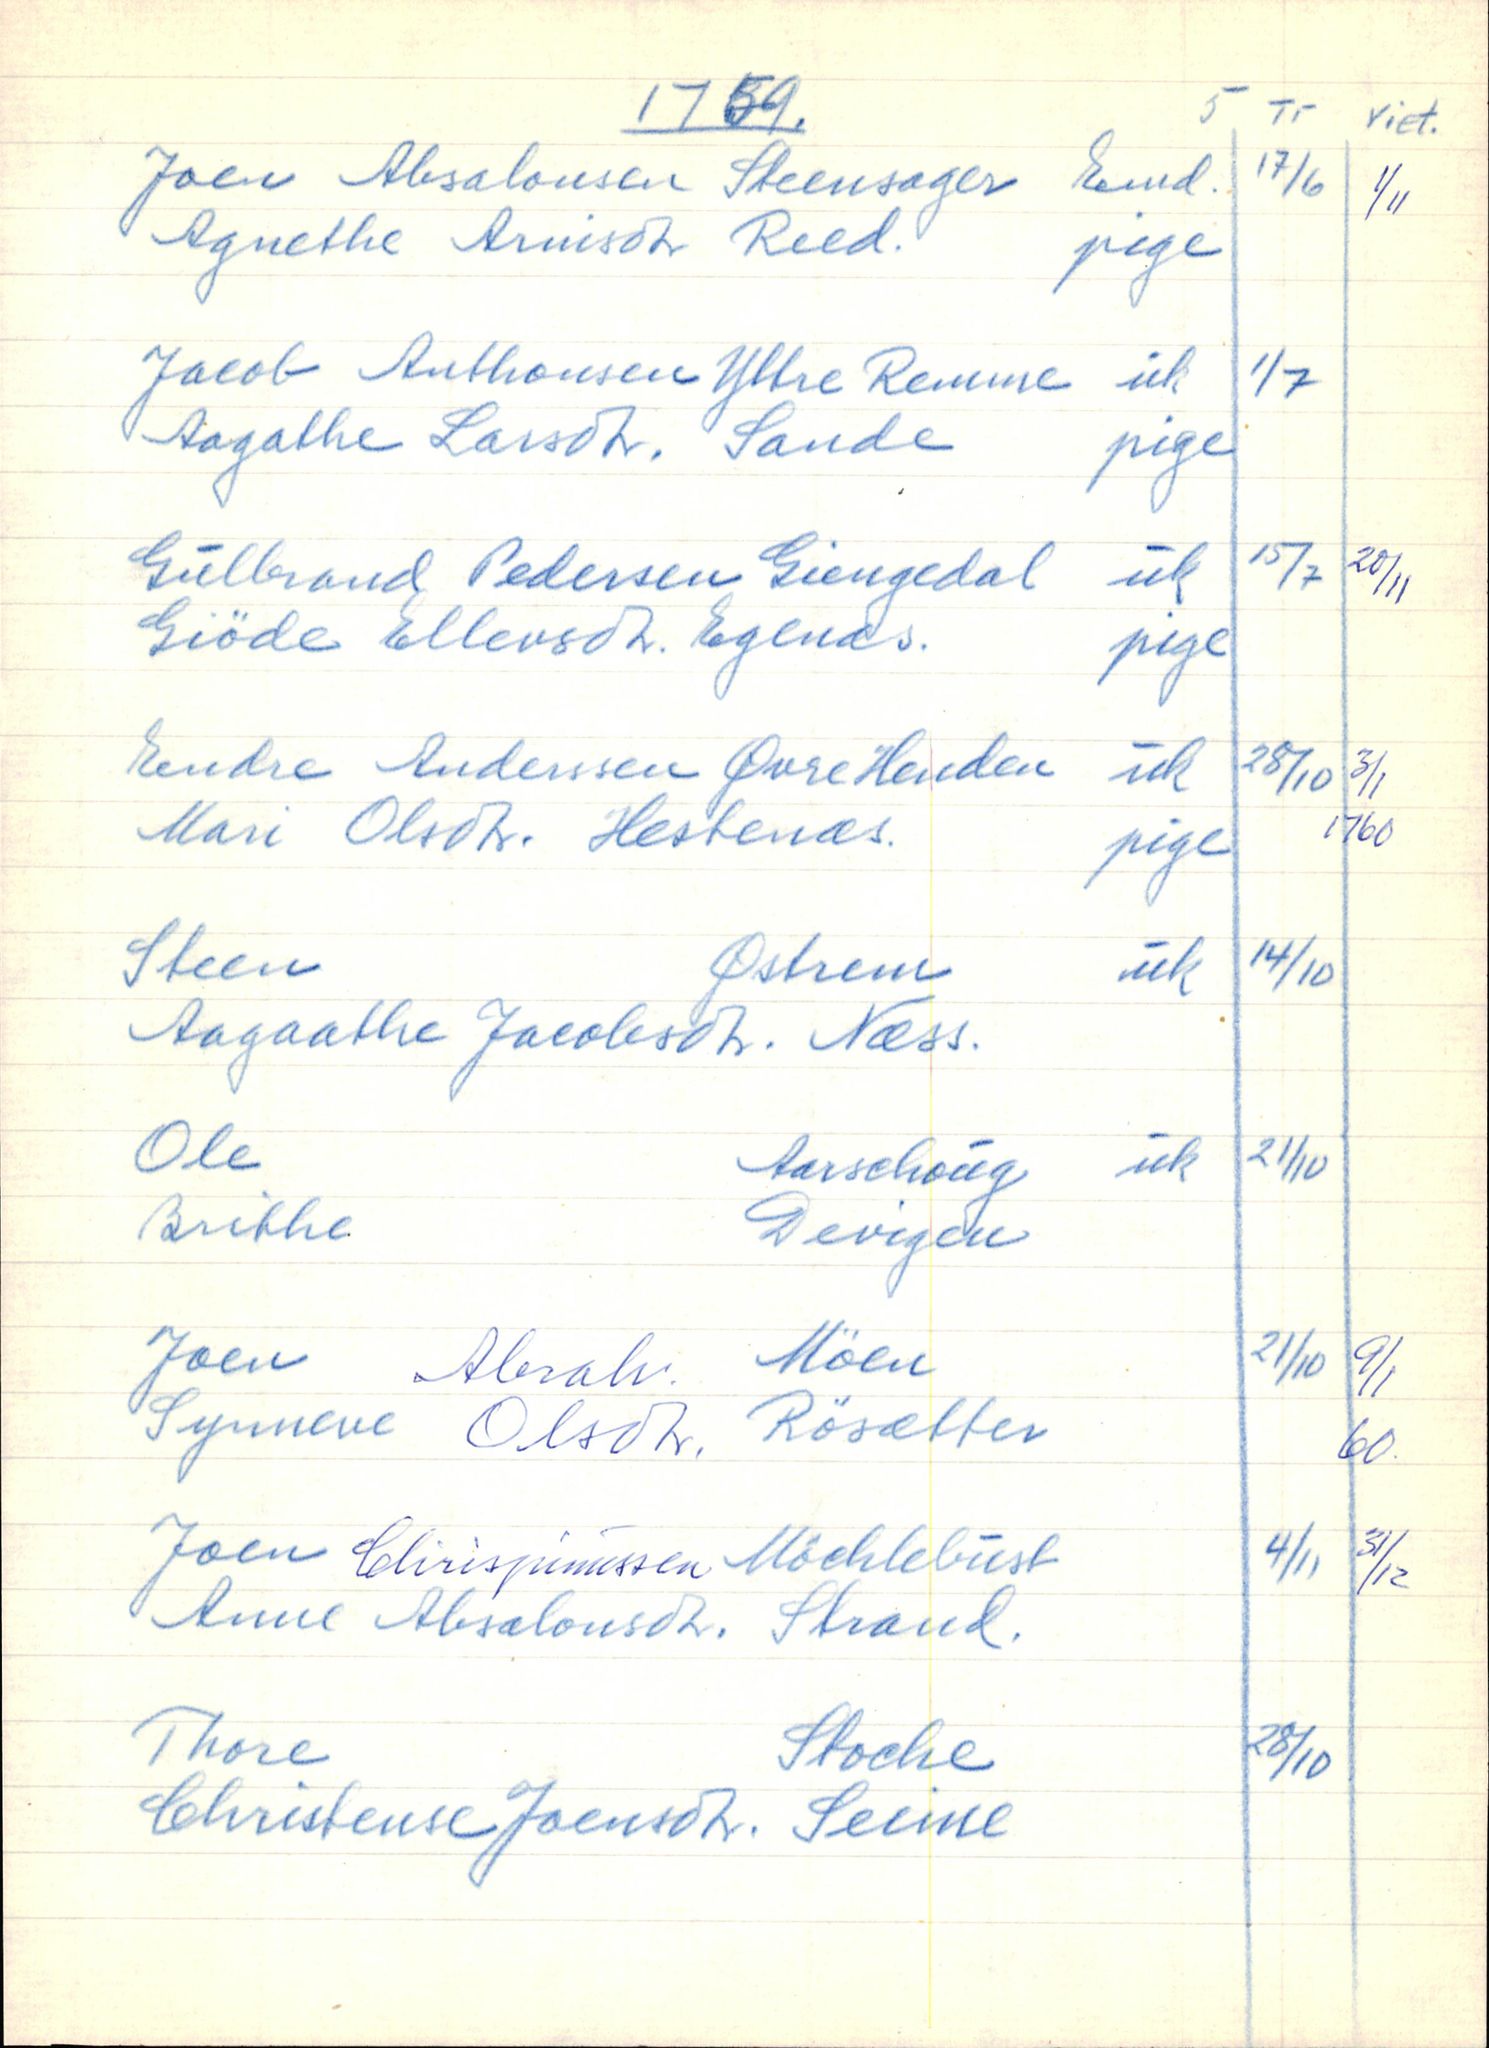 1759.
5 Tr Viet.
Joen Absalonsen Steensager Emd. 17/6 1/11
Agnethe Arnisdtr Reed. pige
Jacob Anthonsen Yttre Remme uk 1/7
Aagathe Larsdtr. Sande pige
Gūlbrand Pedersen Giengedal ūk 15/7 20/11
Giöde Ellevsdtr. Egenæs. pige
Endre Anderssen Øvre Henden ūk 28/10 3/1
Mari Olsdtr. Hestenæs. pige 1760
Steen Østrem ūk 14/10
Aagaathe Jacobsdtr. Næss.
Ole Aarschoūg ūk 21/10
Brithe Devigen
Joen Abrah. Möen 21/10 9/1
Synneve Olsdtr. Rösætter 60.
Joen Chrispinussen Möchlebūst 4/11 31/12
Anne Absalonsdtr. Strand.
Thore Stoche 28/10
Christense Joensdtr. Seime